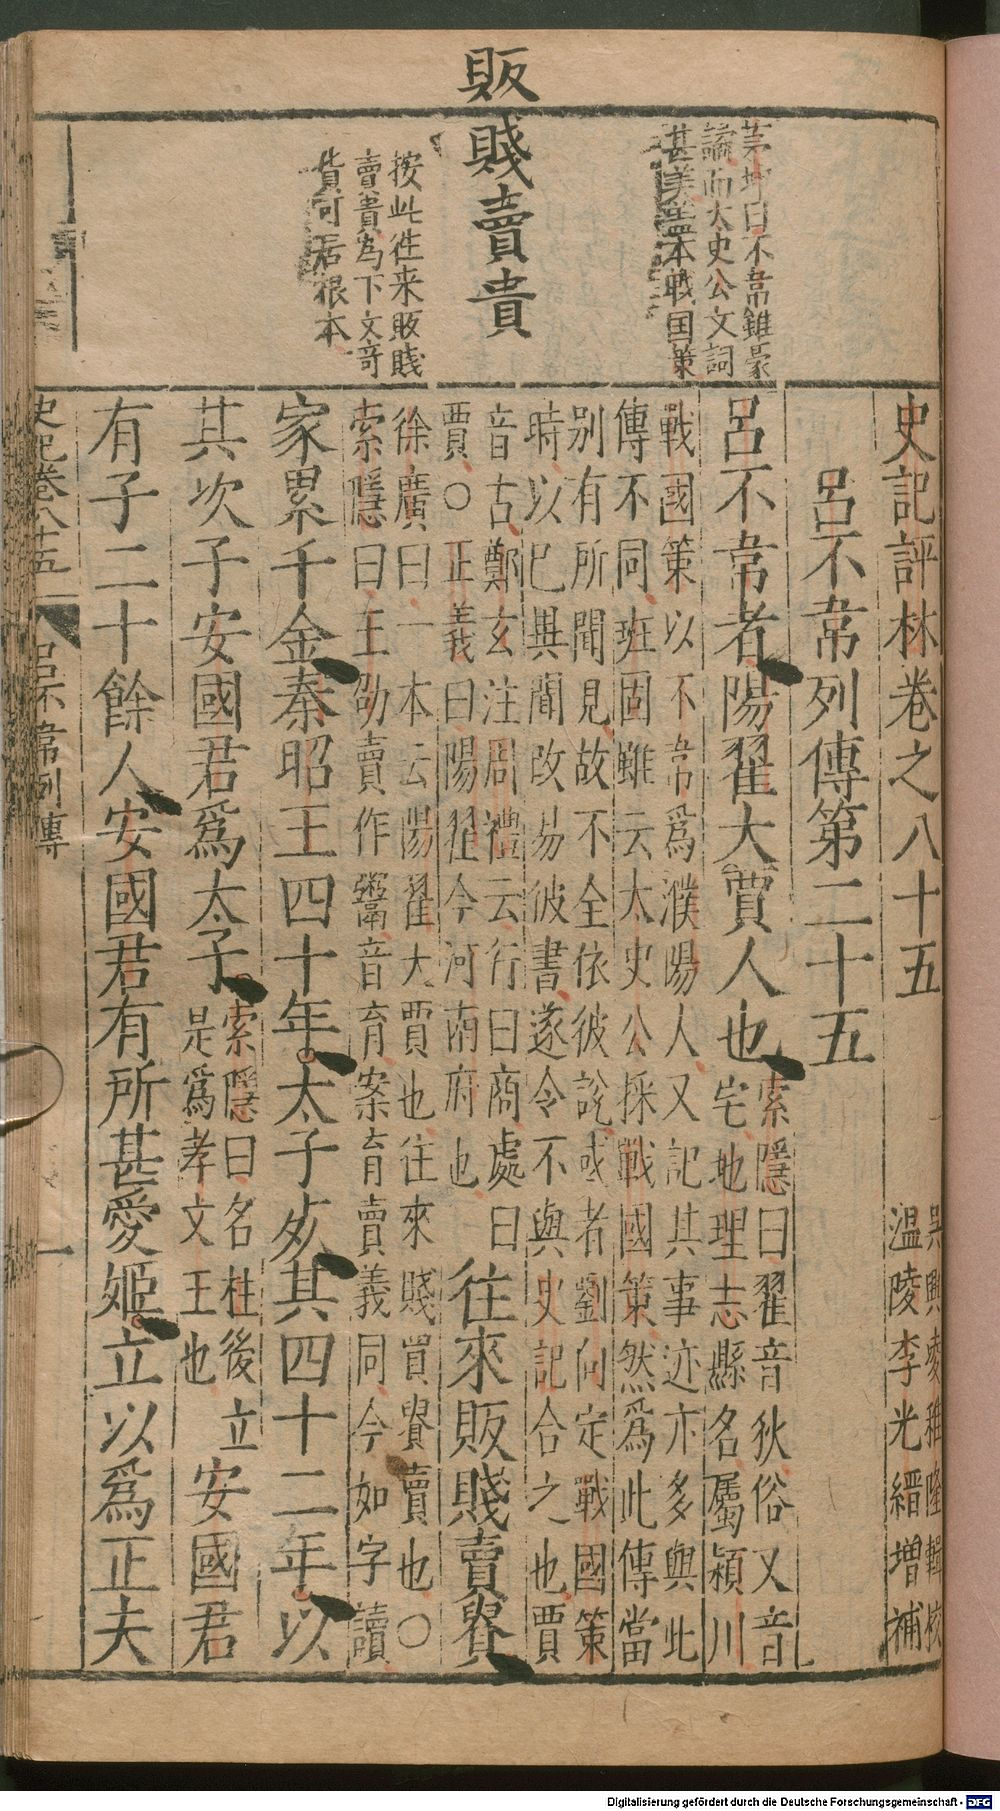 販
賤賣貴
茅坤曰不韋雖豪
譎而太史公文詞
甚美蓋本戰国策
按此徃来販賤
賣貴為下文奇
貨可居根本
史記評林卷之八十五
吳興凌稚隆輯校
溫陵李光縉增補
呂不韋列傳第二十五
呂不韋者陽翟大賈人也
索隱曰翟音狄俗又音
宅地理志縣名屬潁川
戰國策以不韋爲濮陽人又記其事迹亦多與此
傳不同班固雖云太史公採戰國策然爲此傳當
别有所聞見故不全依彼說或者劉向定戰國策
時以已異聞改易彼書遂令不與史記合之也賈
音古鄭玄注周禮云行曰商處曰
賈○正義曰陽翟今河南府也
往來販賤賣貴
徐廣曰一本云陽翟大賈也往來賤買貴賣也○
索隱曰王劭賣作鬻音育案育賣義同今如字讀
家累千金秦昭王四十年太子死其四十二年以
其次子安國君爲太子
索隱曰名柱後立
是爲孝文王也
安國君
有子二十餘人安國君有所甚愛姬立以爲正夫
史記卷八十五
呂不韋列傳
一
Digitalisierung gefördert durch die Deutsche Forschungsgemeinschaft - DFG